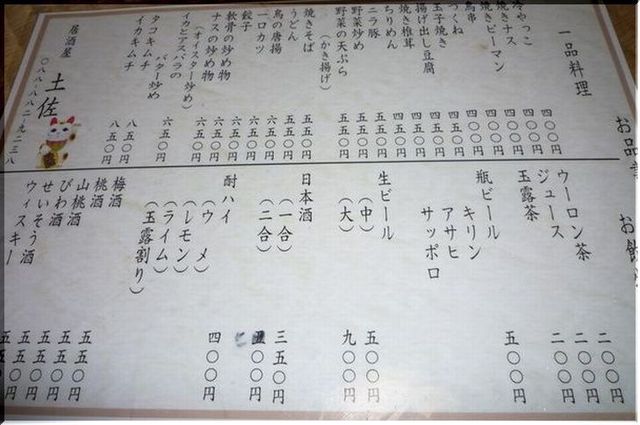 お品書
お飲
一品料理
冷やっこ 四〇〇円
焼きナス 四〇〇円
焼きピーマン 四〇〇円
鳥串 四五〇円
つくね 四五〇円
玉子焼き 四五〇円
揚げ出し豆腐 四五〇円
焼き椎茸 四五〇円
ちりめん
ニラ豚 五五〇円
野菜炒め 五五〇円
野菜の天ぷら 五五〇円
(かき揚げ)
焼きそば 五五〇円
うどん 五五〇円
鳥の唐揚 六五〇円
一口カツ 六五〇円
餃子 六五〇円
軟骨の炒め物 六五〇円
ナスの炒め物 六五〇円
(オイスター炒め)
イカとアスパラの
バター炒め 六五〇円
タコキムチ 八五〇円
イカキムチ 八五〇円
居酒屋 土佐
〇八八-八八二-九二三八
ウーロン茶 二〇〇円
ジュース 二〇〇円
玉露茶 二〇〇円
瓶ビール 五〇〇円
キリン
アサヒ
サッポロ
生ビール
(中) 五〇〇円
(大) 九〇〇円
日本酒
(一合) 三五〇円
(二合) 〇〇円
酎ハイ 四〇〇円
(ウメ)
(レモン)
(ライム)
(玉露割り)
梅酒 五五〇円
桃酒 五五〇円
山桃酒 五五〇円
びわ酒 五五〇円
せいそう酒 五五〇円
ウィスキー 五〇円